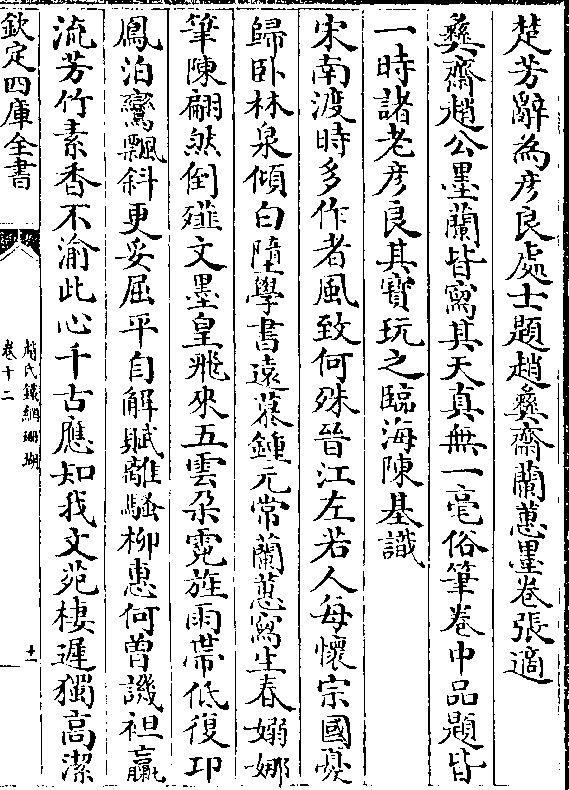 楚芳辭為彥良處士題趙彝齋蘭蕙墨卷張適
彝齋趙公墨蘭皆寫其天真無一毫俗筆卷中品題皆
一時諸老彥良其寶玩之臨海陳基識
宋南渡時多作者風致何殊晉江左若人每懷宗國憂
歸卧林泉傾白墮學書遠慕鍾元常蘭蕙寫生春嫋娜
筆陳翩然倒薤文墨皇飛來五雲朵霓旌雨帶低復卭
鳳泊鸞飄斜更妥屈平自解賦離騷柳惠何曾譏袒臝
流芳竹素香不渝此心千古應知我文苑棲遲獨高潔
欽定四庫全書
趙氏鐵網珊瑚
卷十二
十一